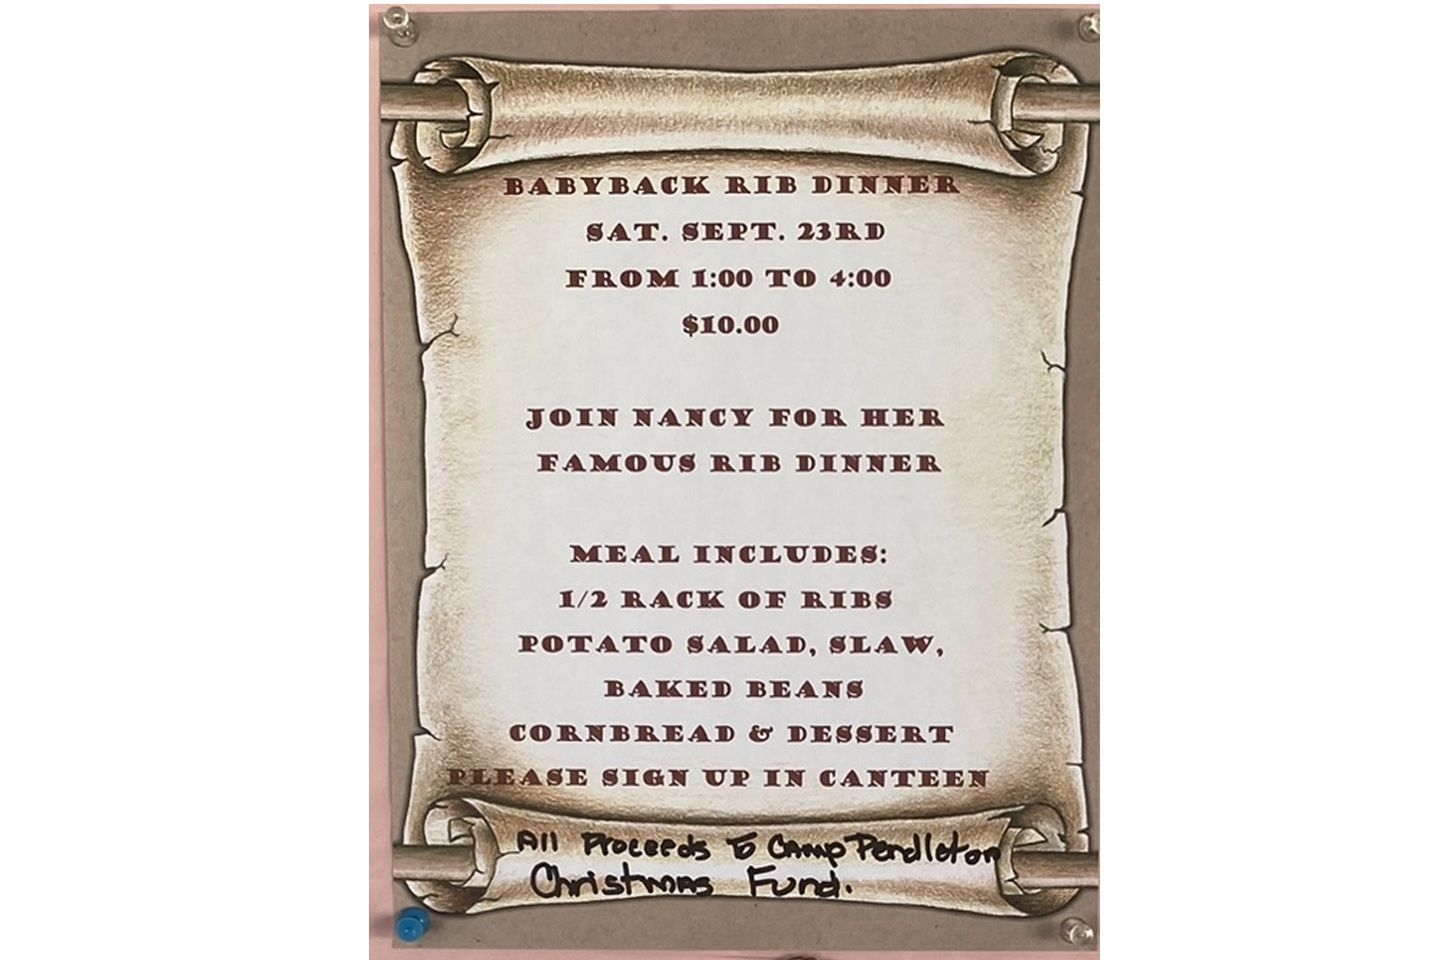 BABYBACK RIB DINNER
SAT. SEPT. 23RD
FROM 1:00 TO 4:00
$10.00
JOIN NANCY FOR HER
FAMOUS RIB DINNER
MEAL INCLUDES:
1/2 RACK OF RIBS
POTATO SALAD, SLAW,
BAKED BEANS
CORNBREAD & DESSERT
PLEASE SIGN UP IN CANTEEN
All Proceeds To Camp Pendleton
Christmas Fund.